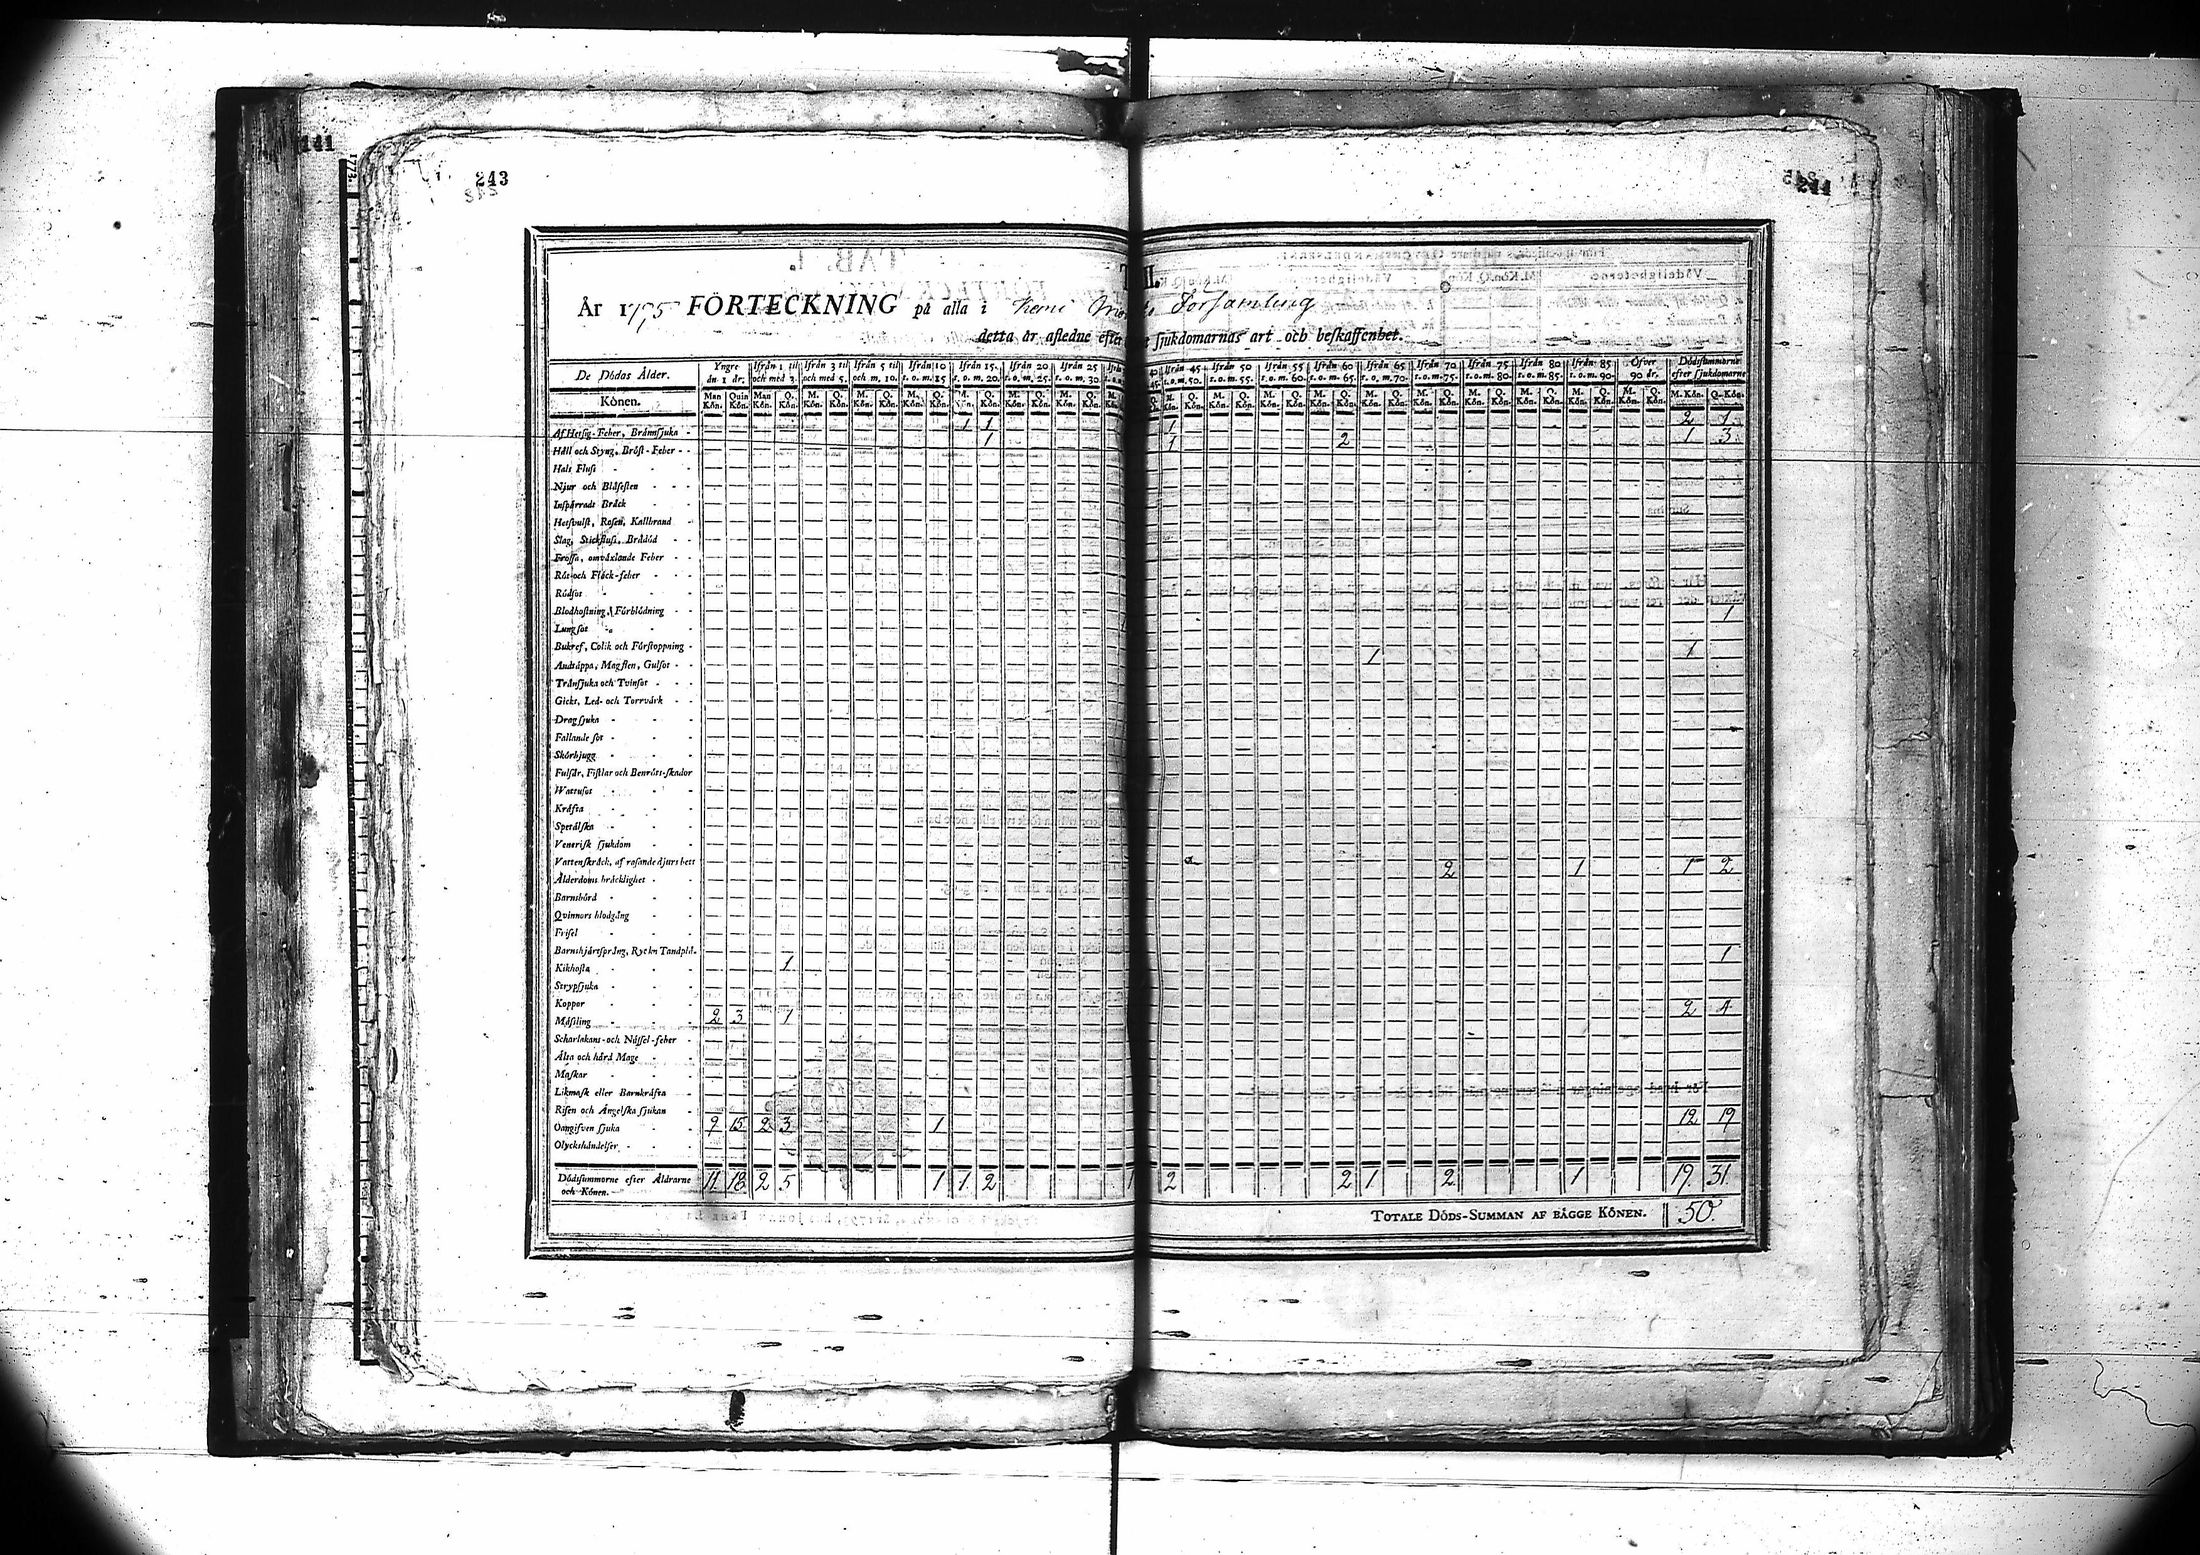 141
243
II.
År 1795 FÖRTECKNING på alla i Kemi Församling
detta år afledne efter sjukdomarnas art och beskaffenhet.
De Dödas Ålder. Yngre än 1 år. Ifrån 1 til och med 3. Ifrån 3 til och med 5. Ifrån 5 til och m. 10. Ifrån 10 t. o. m. 15 Ifrån 15. t. o. m. 20. Ifrån 20 t. o. m. 25. Ifrån 25 t. o. m. 30. Ifrån 45 t. o. m. 50. Ifrån 50 t. o. m. 55. Ifrån 55 t. o. m. 60. Ifrån 60 t. o. m. 65. Ifrån 65 t. o. m. 70. Ifrån 70 t. o. m. 75. Ifrån 75 t. o. m. 80. Ifrån 80 t. o. m. 85. Ifrån 85 t. o. m. 90. Öfver 90 år. Dödssummorne efter sjukdomarne
Könen. Man Kön. Quin Kön. Man Kön. Q. Kön. M. Kön. Q. Kön. M. Kön. Q. Kön. M. Kön. Q. Kön. M. Kön. Q. Kön.
Af Hetsig-Feber, Brännsjuka 1 1 1 2 1
Håll och Styng, Bröst-Feber 1 1 2 1 3
Hals Fluss
Njur och Blåsesten
Inspärradt Bråck
Hetsvulst, Rosen, Kallbrand
Slag, Stickfluss, Brådöd
Frossa, omväxlande Feber
Röt och Fläck-feber
Rödsot
Blodhostning, Förblödning
Lungsot 1
Bukref, Colik och Förstoppning
Andtäppa, Magsten, Gulsot 1 1
Trånsjuka och Tvinsot
Gickt, Led- och Torrvärk
Dragsjuka
Fallande sot
Skörbjugg
Fulsår, Fistlar och Benröts-skador
Wattusot
Kräfta
Spetälska
Venerisk sjukdom
Vattenskräck, af rasande djurs bett
Ålderdoms bräcklighet 2 1 1 2
Barnsbörd
Qvinnors blodgång
Frisel
Barnshjärtsprång, Ryck
Kikhosta 1 1
Strypsjuka
Koppor
Mässling 2 3 1 2 4
Scharlakans- och Nässel-feber
Älta och hård Mage
Maskar
Likmask eller Barnkräfta
Risen och Ängelska sjukan
Oangifven sjuka 9 15 2 3 1 12 19
Olyckshändelser
Dödssummorne efter Åldrarne och Könen. 11 18 2 5 1 1 2 1 2 2 1 2 1 19 31
TOTALE DÖDS-SUMMAN AF BÄGGE KÖNEN. 50.